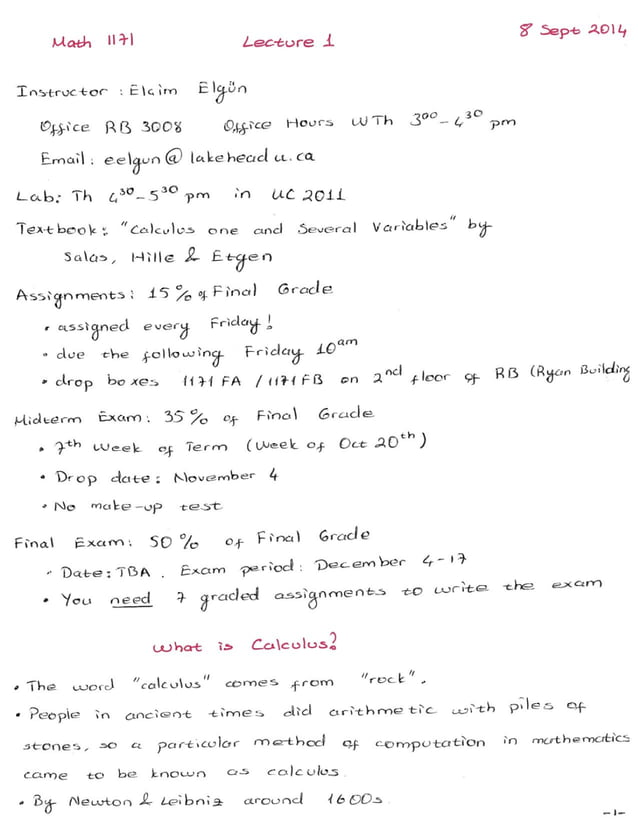 Math 1171 Lecture 1 8 Sept 2014
Instructor : Elaim Elgün
Office RB 3008 Office Hours WTh 3⁰⁰ - 4³⁰ pm
Email : eelgun@lakeheadu.ca
Lab: Th 4³⁰ - 5³⁰ pm in UC 2011
Textbook: "Calculus one and Several Variables" by
Salas, Hille & Etgen
Assignments: 15% of Final Grade
• assigned every Friday!
• due the following Friday 10ᵃᵐ
• drop boxes 1171 FA / 1171 FB on 2ⁿᵈ floor of RB (Ryan Building
Midterm Exam: 35% of Final Grade
• 7ᵗʰ week of Term (Week of Oct 20ᵗʰ)
• Drop date: November 4
• No make-up test
Final Exam: 50% of Final Grade
• Date: TBA. Exam period: December 4-17
• You need 7 graded assignments to write the exam
What is Calculus?
• The word "calculus" comes from "rock".
• People in ancient times did arithmetic with piles of
stones, so a particular method of computation in mathematics
came to be known as calculus.
• By Newton & Leibniz around 1600s.
-1-